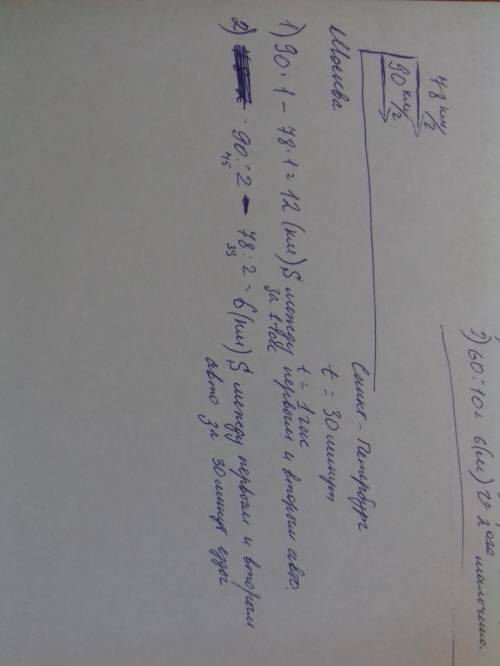 2) 60:10 = 6(м) V 2 ого мальчика.
78 км/г
90 км/г
Москва
Санкт - Петербург
t = 30 минут
t = 1 час
1) 90·1 - 78·1 = 12 (км) S между первым и вторым авто.
за 1 час
2) - 90:2 - 78:2 = 6(км) S между первым и вторым
45 39
авто за 30 минут